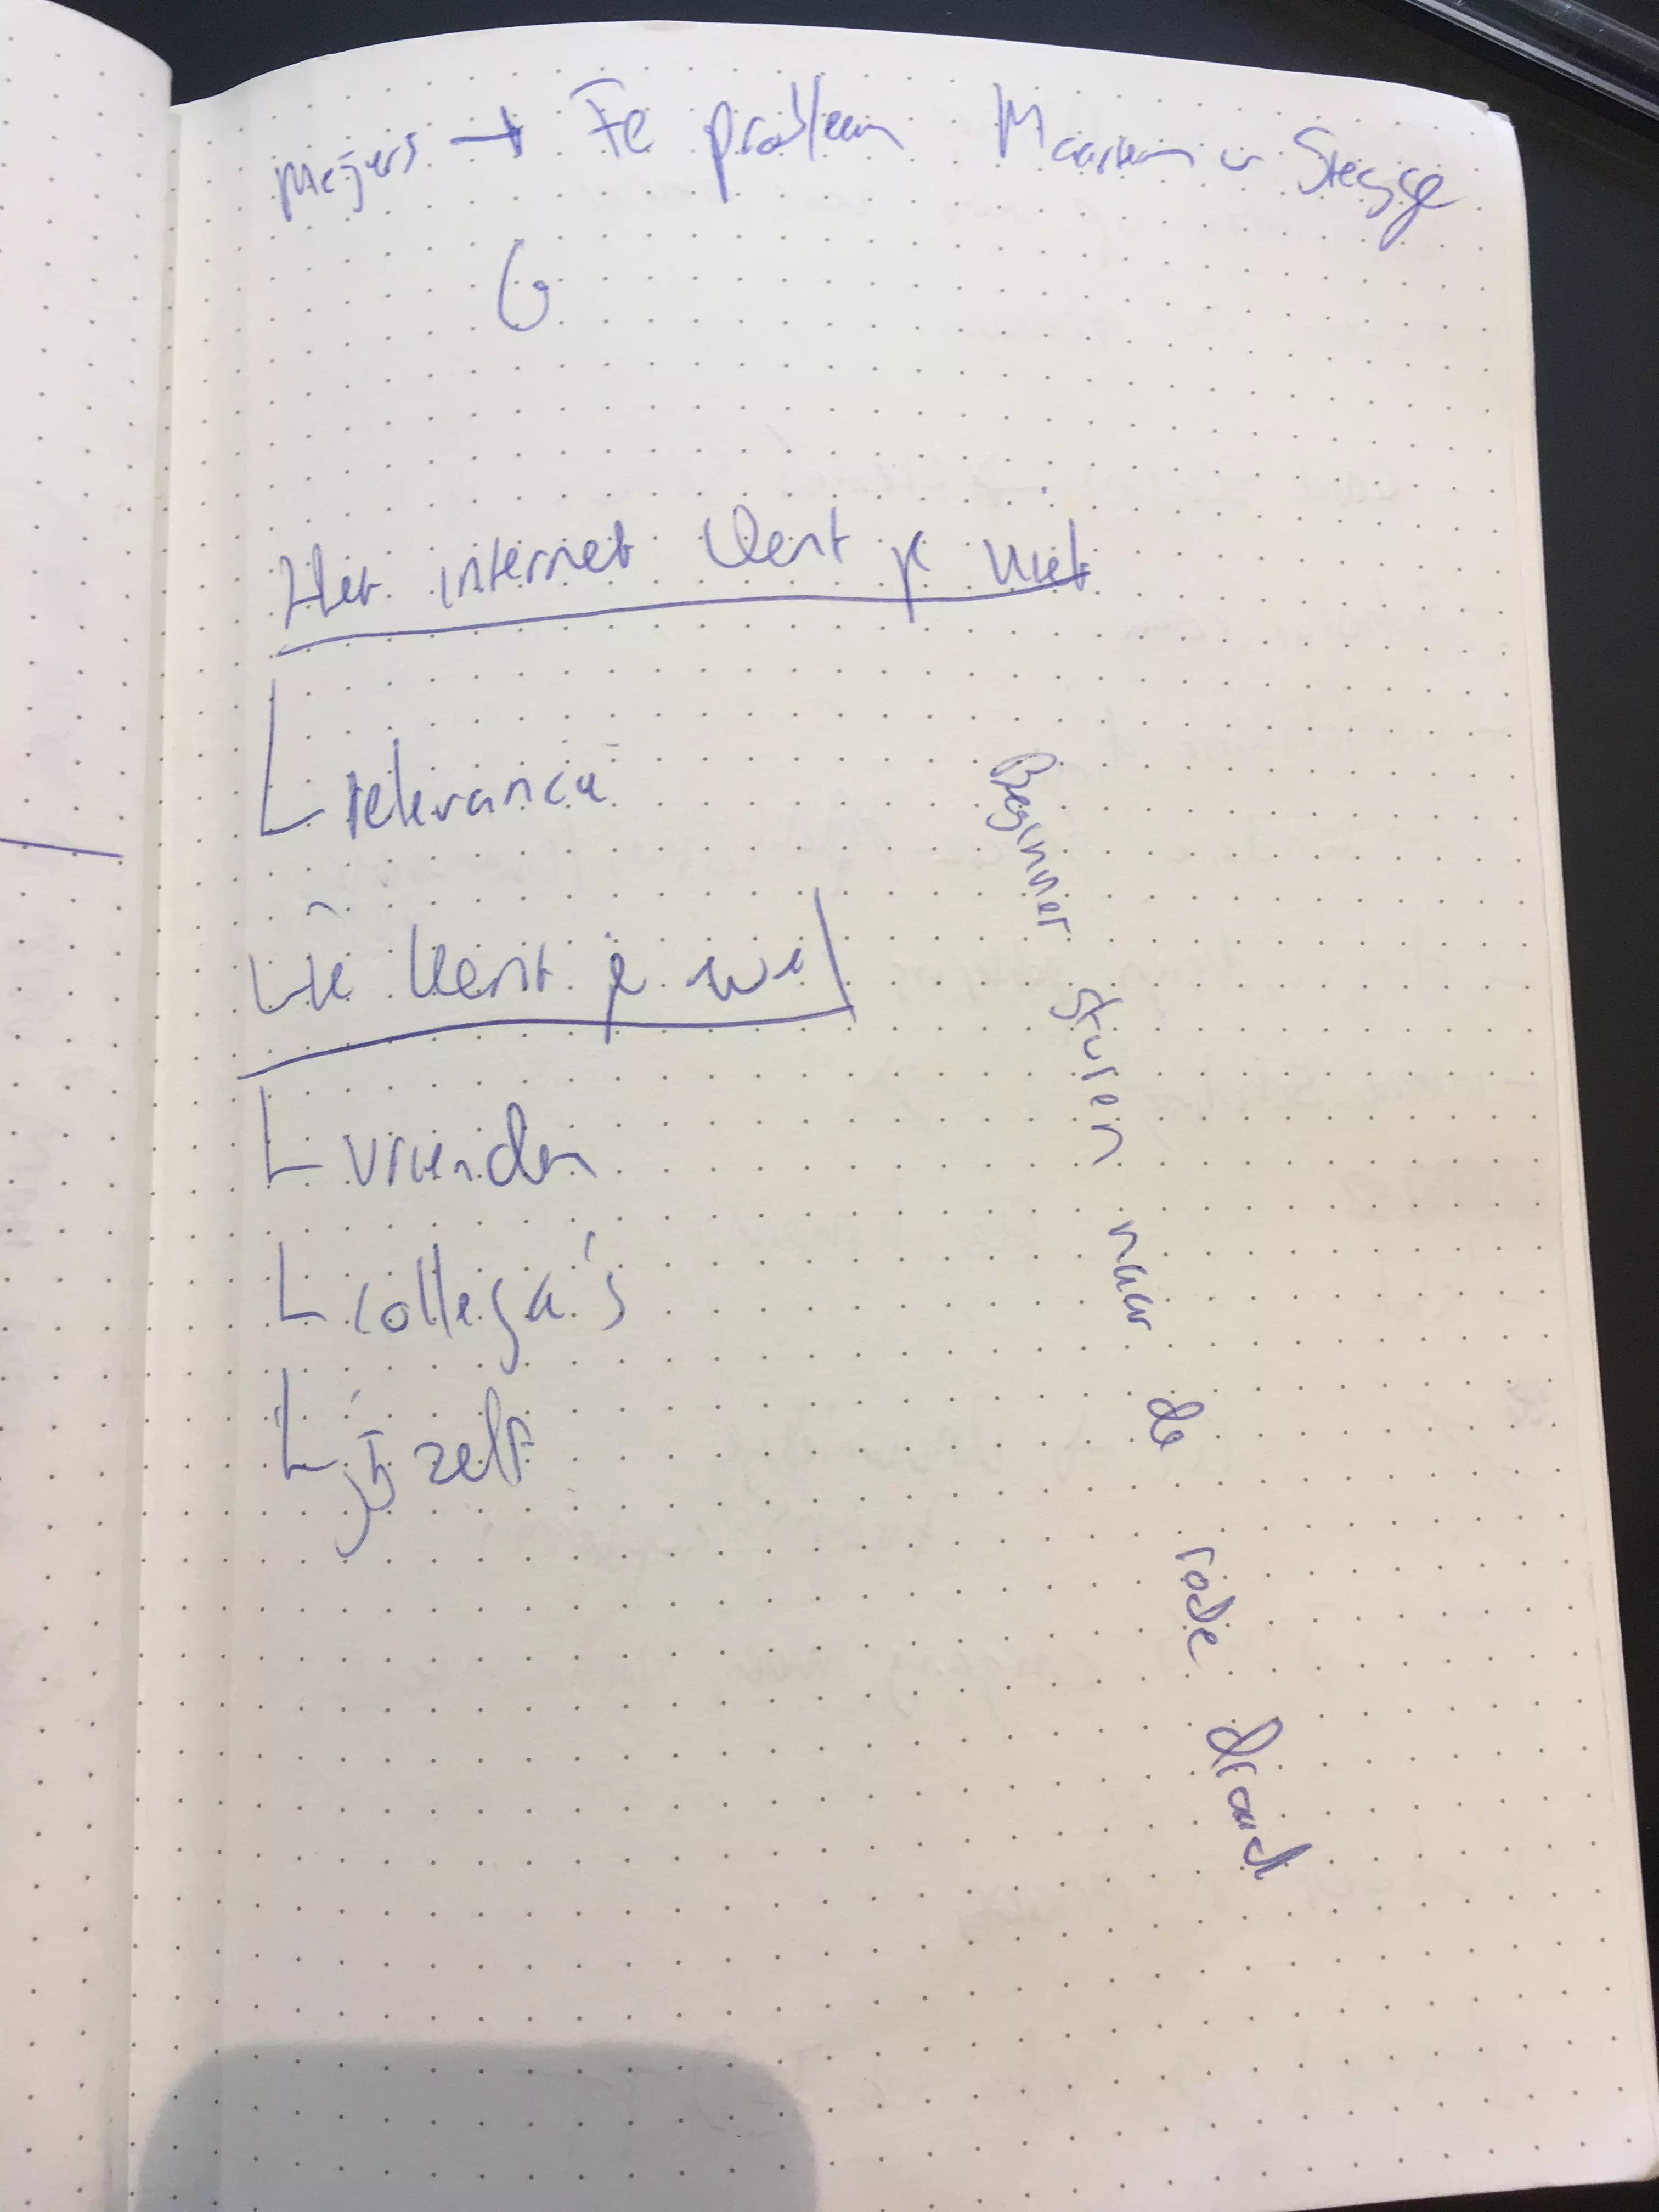 Meijers → Fe probleem Maarten v Stegge
Het internet kent je niet
relevance
Wie kent je wel
vrienden
collega's
jij zelf
Beginner sturen naar de rode draad